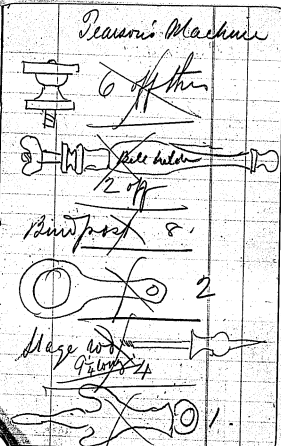 Pearson's Machine
6 off this
Bell holder
2 off
Bindpost 8.
2
Stage rod
9¼ long 4
1.